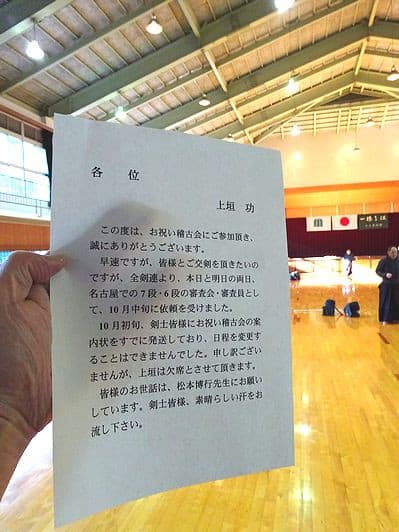 各　位
上垣　功
この度は、お祝い稽古会にご参加頂き、
誠にありがとうございます。
早速ですが、皆様とご交剣を頂きたいの
ですが、全剣連より、本日と明日の両日、
名古屋での７段・６段の審査会・審査員とし
て、10月中旬に依頼を受けました。
10月初旬、剣士皆様にお祝い稽古会の案
内状をすでに発送しており、日程を変更す
ることはできませんでした。申し訳ござい
ませんが、上垣は欠席とさせて頂きます。
皆様のお世話は、松本博行先生にお願い
しています。剣士皆様、素晴らしい汗をお
流し下さい。